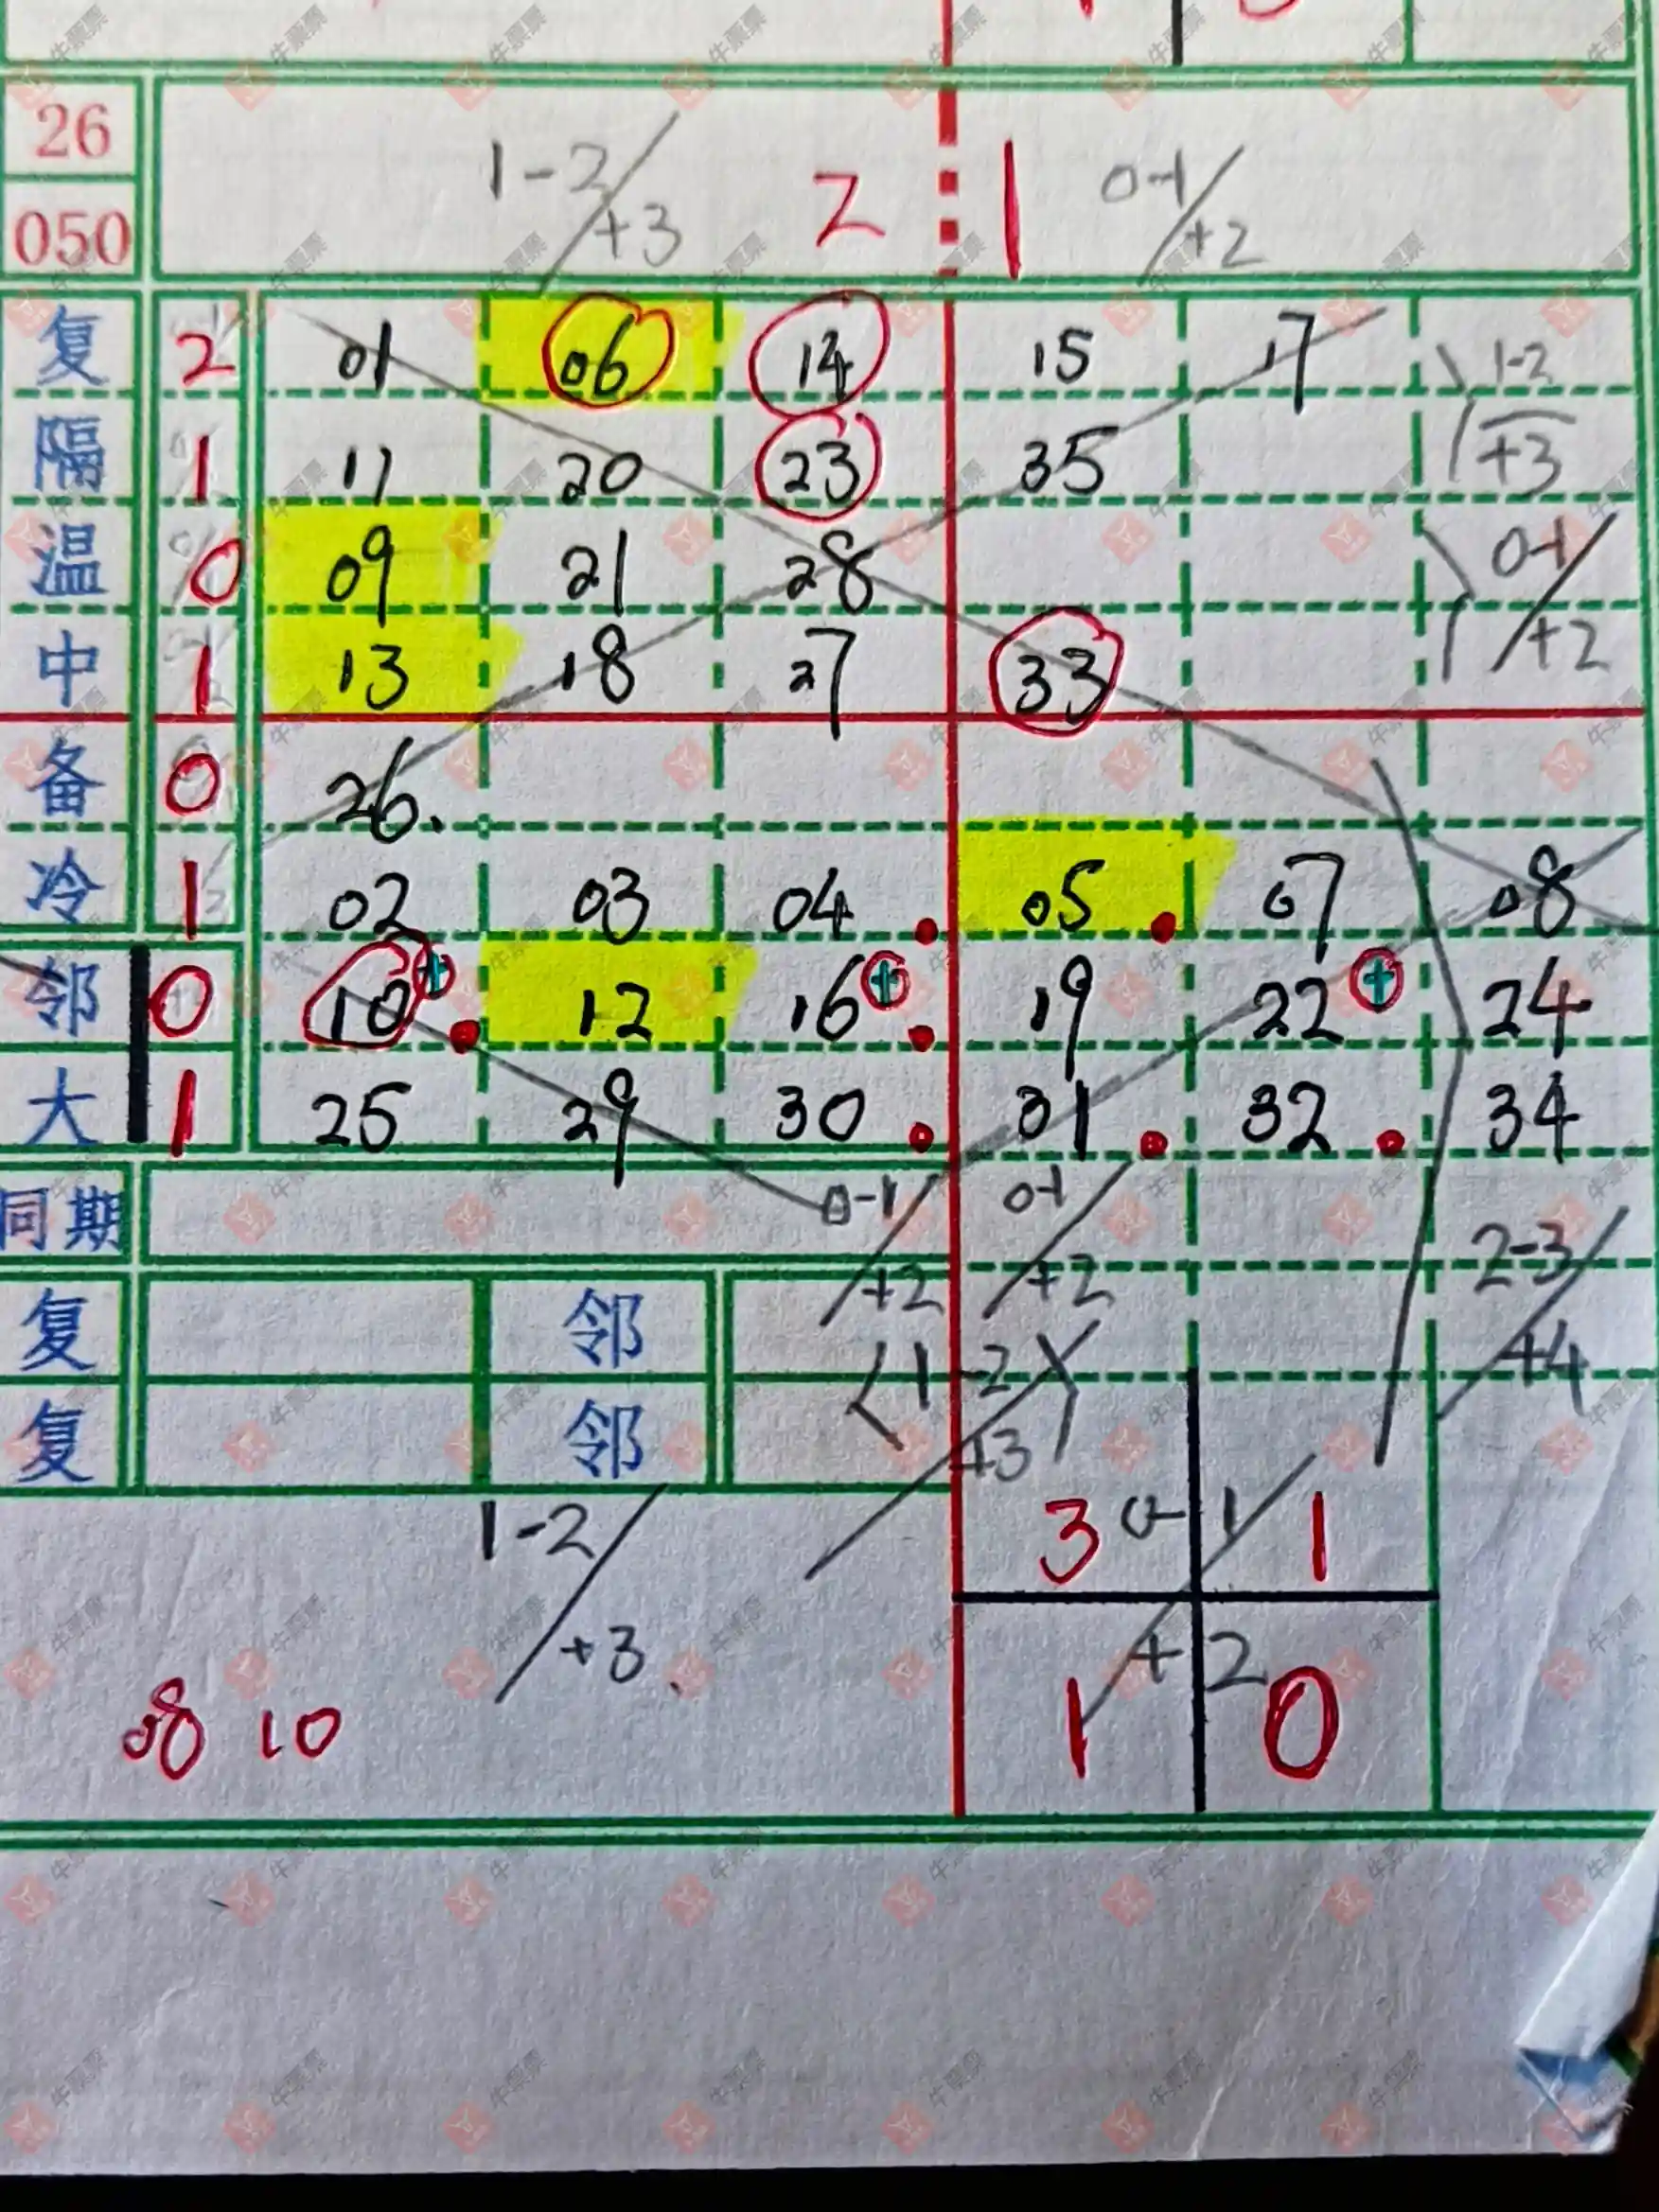 26
050
1-2/+3 2 1 0-1/+2
复 2 01 06 14 15 17 1-2
隔 1 11 20 23 35 +3
温 0 09 21 28 0-1/
中 1 13 18 27 33 +2
备 0 26.
冷 1 02 03 04 05 07 08
邻 0 10 12 16 19 22 24
大 1 25 29 30 31 32 34
同期 0-1/+2 0-1/+2 2-3/+4
复 邻 1-2
复 邻 +3
1-2/+3 3 0-1/+2 1
08 10 1 0
牛票票